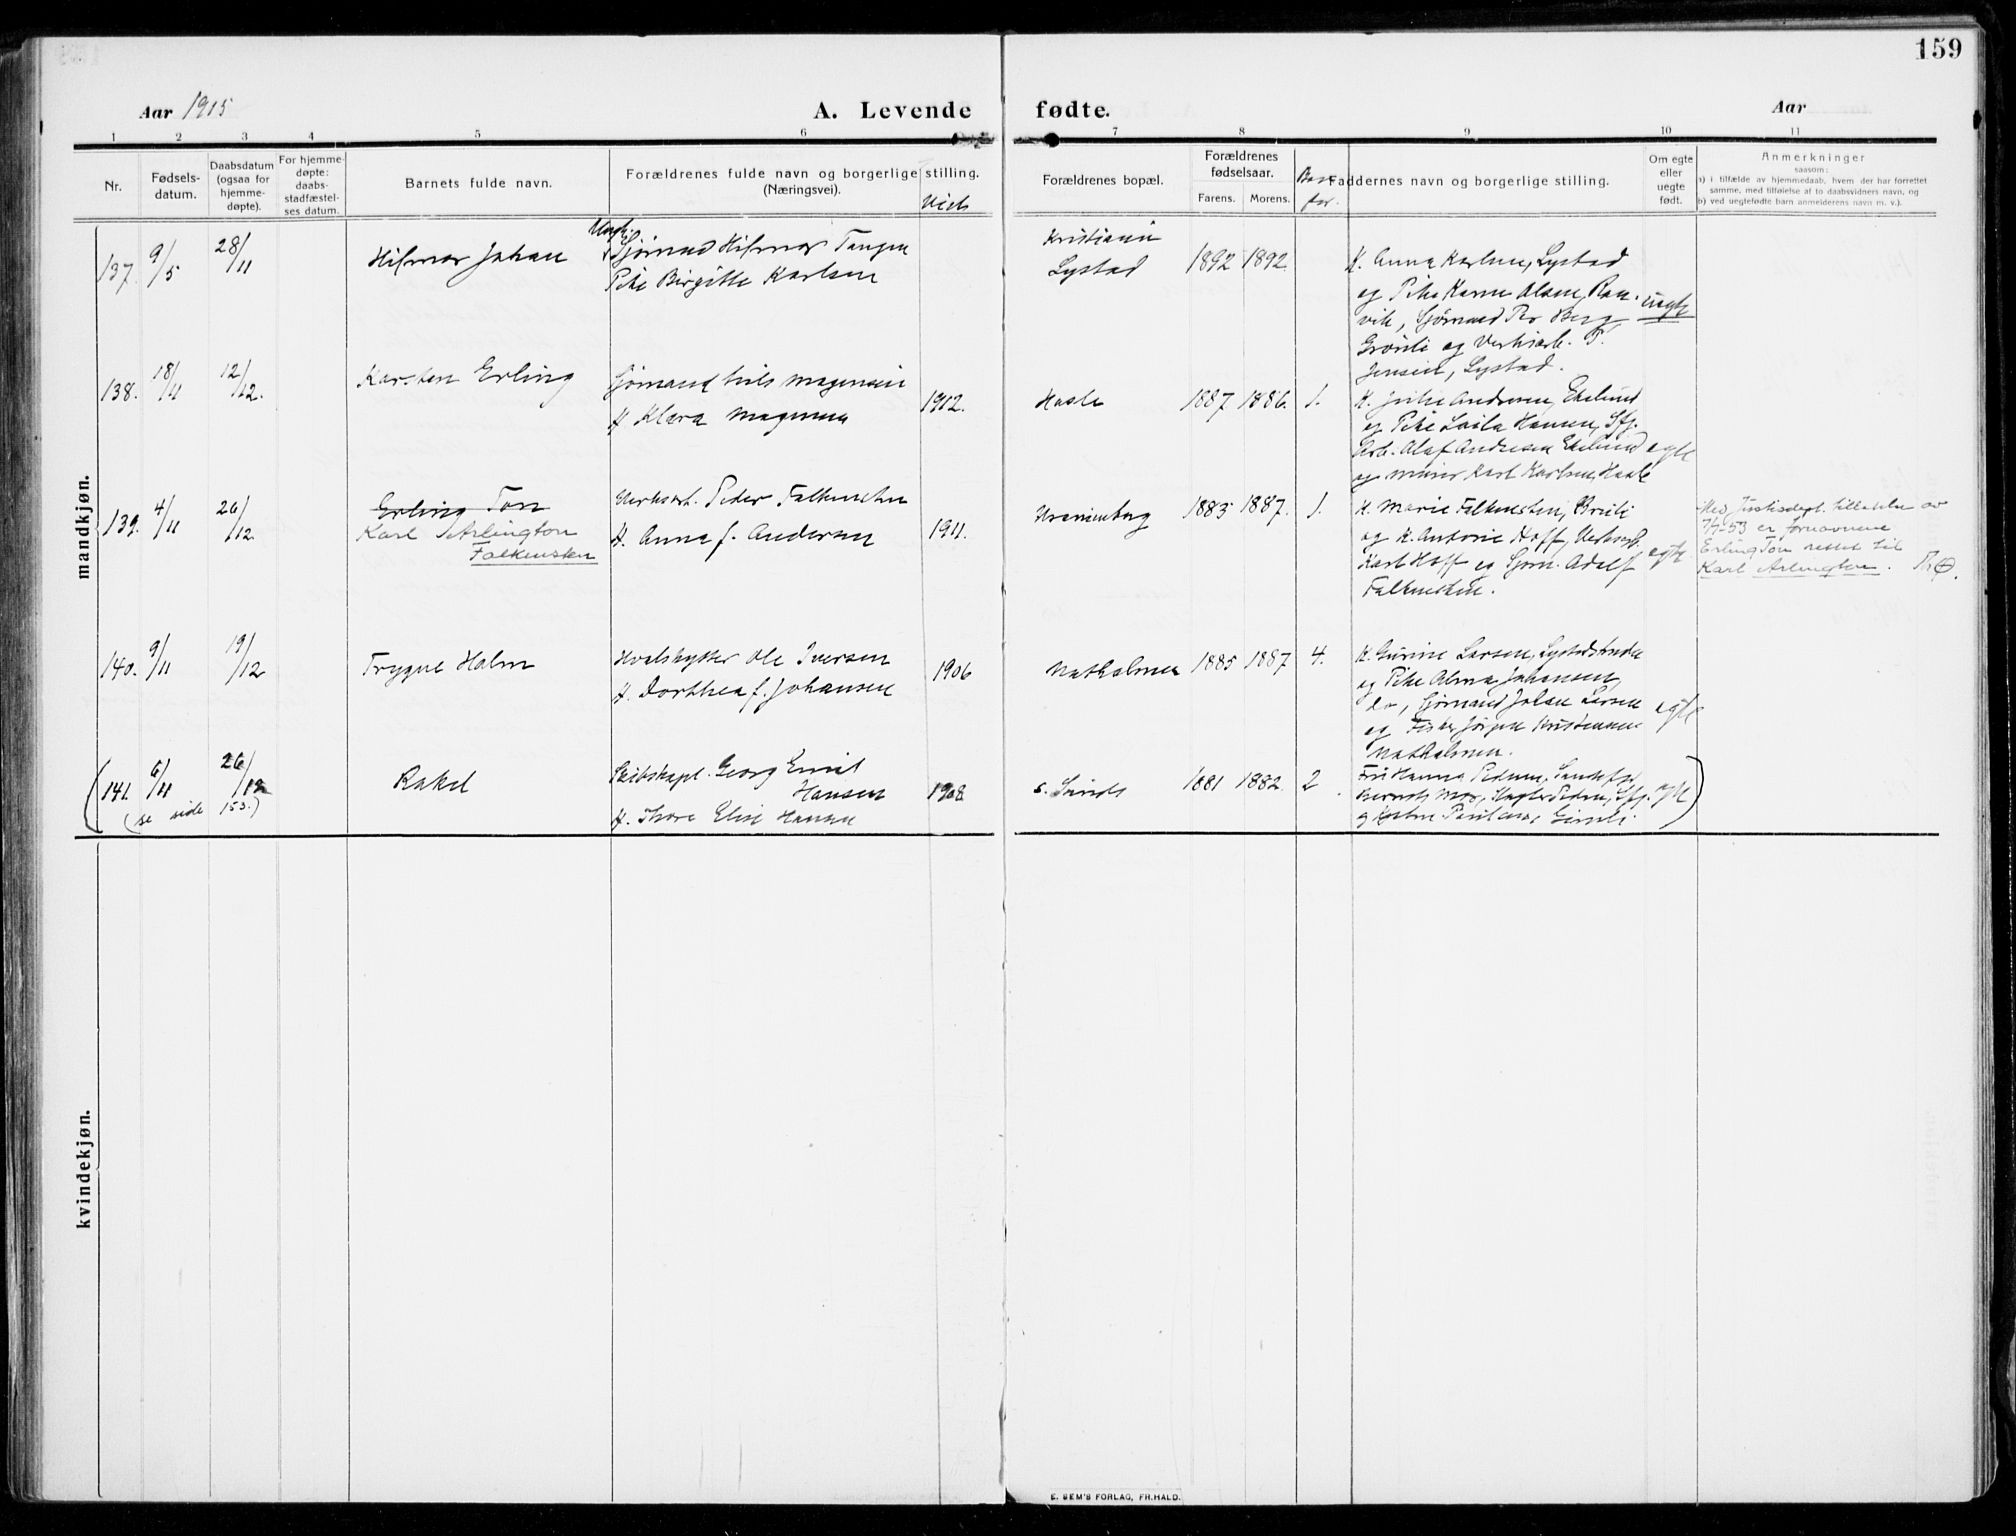 159
Aar 1915
A. Levende fødte.
Aar
1 2 3 4 5 6 7 8 9 10 11
Nr.
Fødsels-
datum.
Daabsdatum
(ogsaa for
hjemme-
døpte).
For hjemme-
døpte:
daabs-
stadfæstel-
ses datum.
Barnets fulde navn.
Forældrenes fulde navn og borgerlige stilling.
(Næringsvei).
Viet
Forældrenes bopæl.
Forældrenes
fødselsaar.
Farens. Morens.
Faddernes navn og borgerlige stilling.
Om egte
eller
uegte
født.
Anmerkninger
saasom:
a) i tilfælde av hjemmedaab, hvem der har forrettet
samme, med tilføielse af to daabsvidners navn, og
b) ved uegtefødte barn anmelderens navn m. v.).
mandkjøn.
137. 9/5 28/11 Hilmar Johan
Ungk. Sjømand Hilmar Tangen
Pike Birgitte Karlsen
Kristiania
Lystad 1892 1892
K. Anna Karlsen, Lystad
og Pike Karen Olsen, Ran-
vik, Sjømand Per Berg,
Grønli og Verksarb. P.
Jensen, Lystad.
uegte
138. 18/11 12/12. Karsten Erling
Sjømand Nils Magnussen
H. Klara Magnussen
1912. Hasle 1887 1886. 1.
K. Andersen, Ekelund
og Pike Laila Hansen, Sfj.
Arb. Olaf Andersen Ekelund
og murer Karl Karlsen, Hasle
egte
139. 4/11 26/12. Erling Ton
Karl Arlington
Falkensten
Verksarb. Peder Falkensten
H. Anna f. Andersen
1911. Kranienborg 1883 1887. 1.
K. Marie Falkensten, Breili
og K. Antonie Hoff, Verksarb.
Karl Hoff og Sjøm. Adolf
Falkensten.
egte
Med Justisdept. tillatelse av
7/7-53 er fornavnene
Erling Ton rettet til
Karl Arlington.
140. 9/11 19/12 Trygve Holm
Hvalskytter Ole Iversen
H. Dorthea f. Johansen
1906 Natholmen 1885 1887 4.
K. Gurine Larsen, Lystadstranda
og Pike Alma Johansen,
do, Sjømand Johan Larsen
og Fisker Jørgen Kristiansen
Natholmen.
egte
(141. 6/11 26/12 Rakel
(se side 153.)
Skibskapt. Georg Emil
Hansen
H. Thora Elise Hansen
1908 s. Sunds 1881 1882. 2.
Fru Hanna Pedersen, Sandefjd,
Pedersen, Sfj.
og Paulsen, Gimle.
egte)
kvindekjøn.
E. SEM'S FORLAG, FR.HALD.